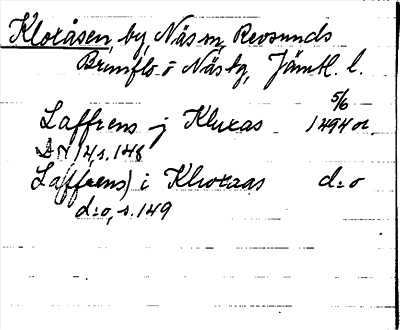 Kloxåsen, by, Näs sn, Revsunds
Brunflo o Näs tg, Jämtl. l.
5/6
Laffrens j Kluxas 1494 or.
DN 14, s. 148
La(ffrens) i Kloxaas d:o
d:o, s. 149